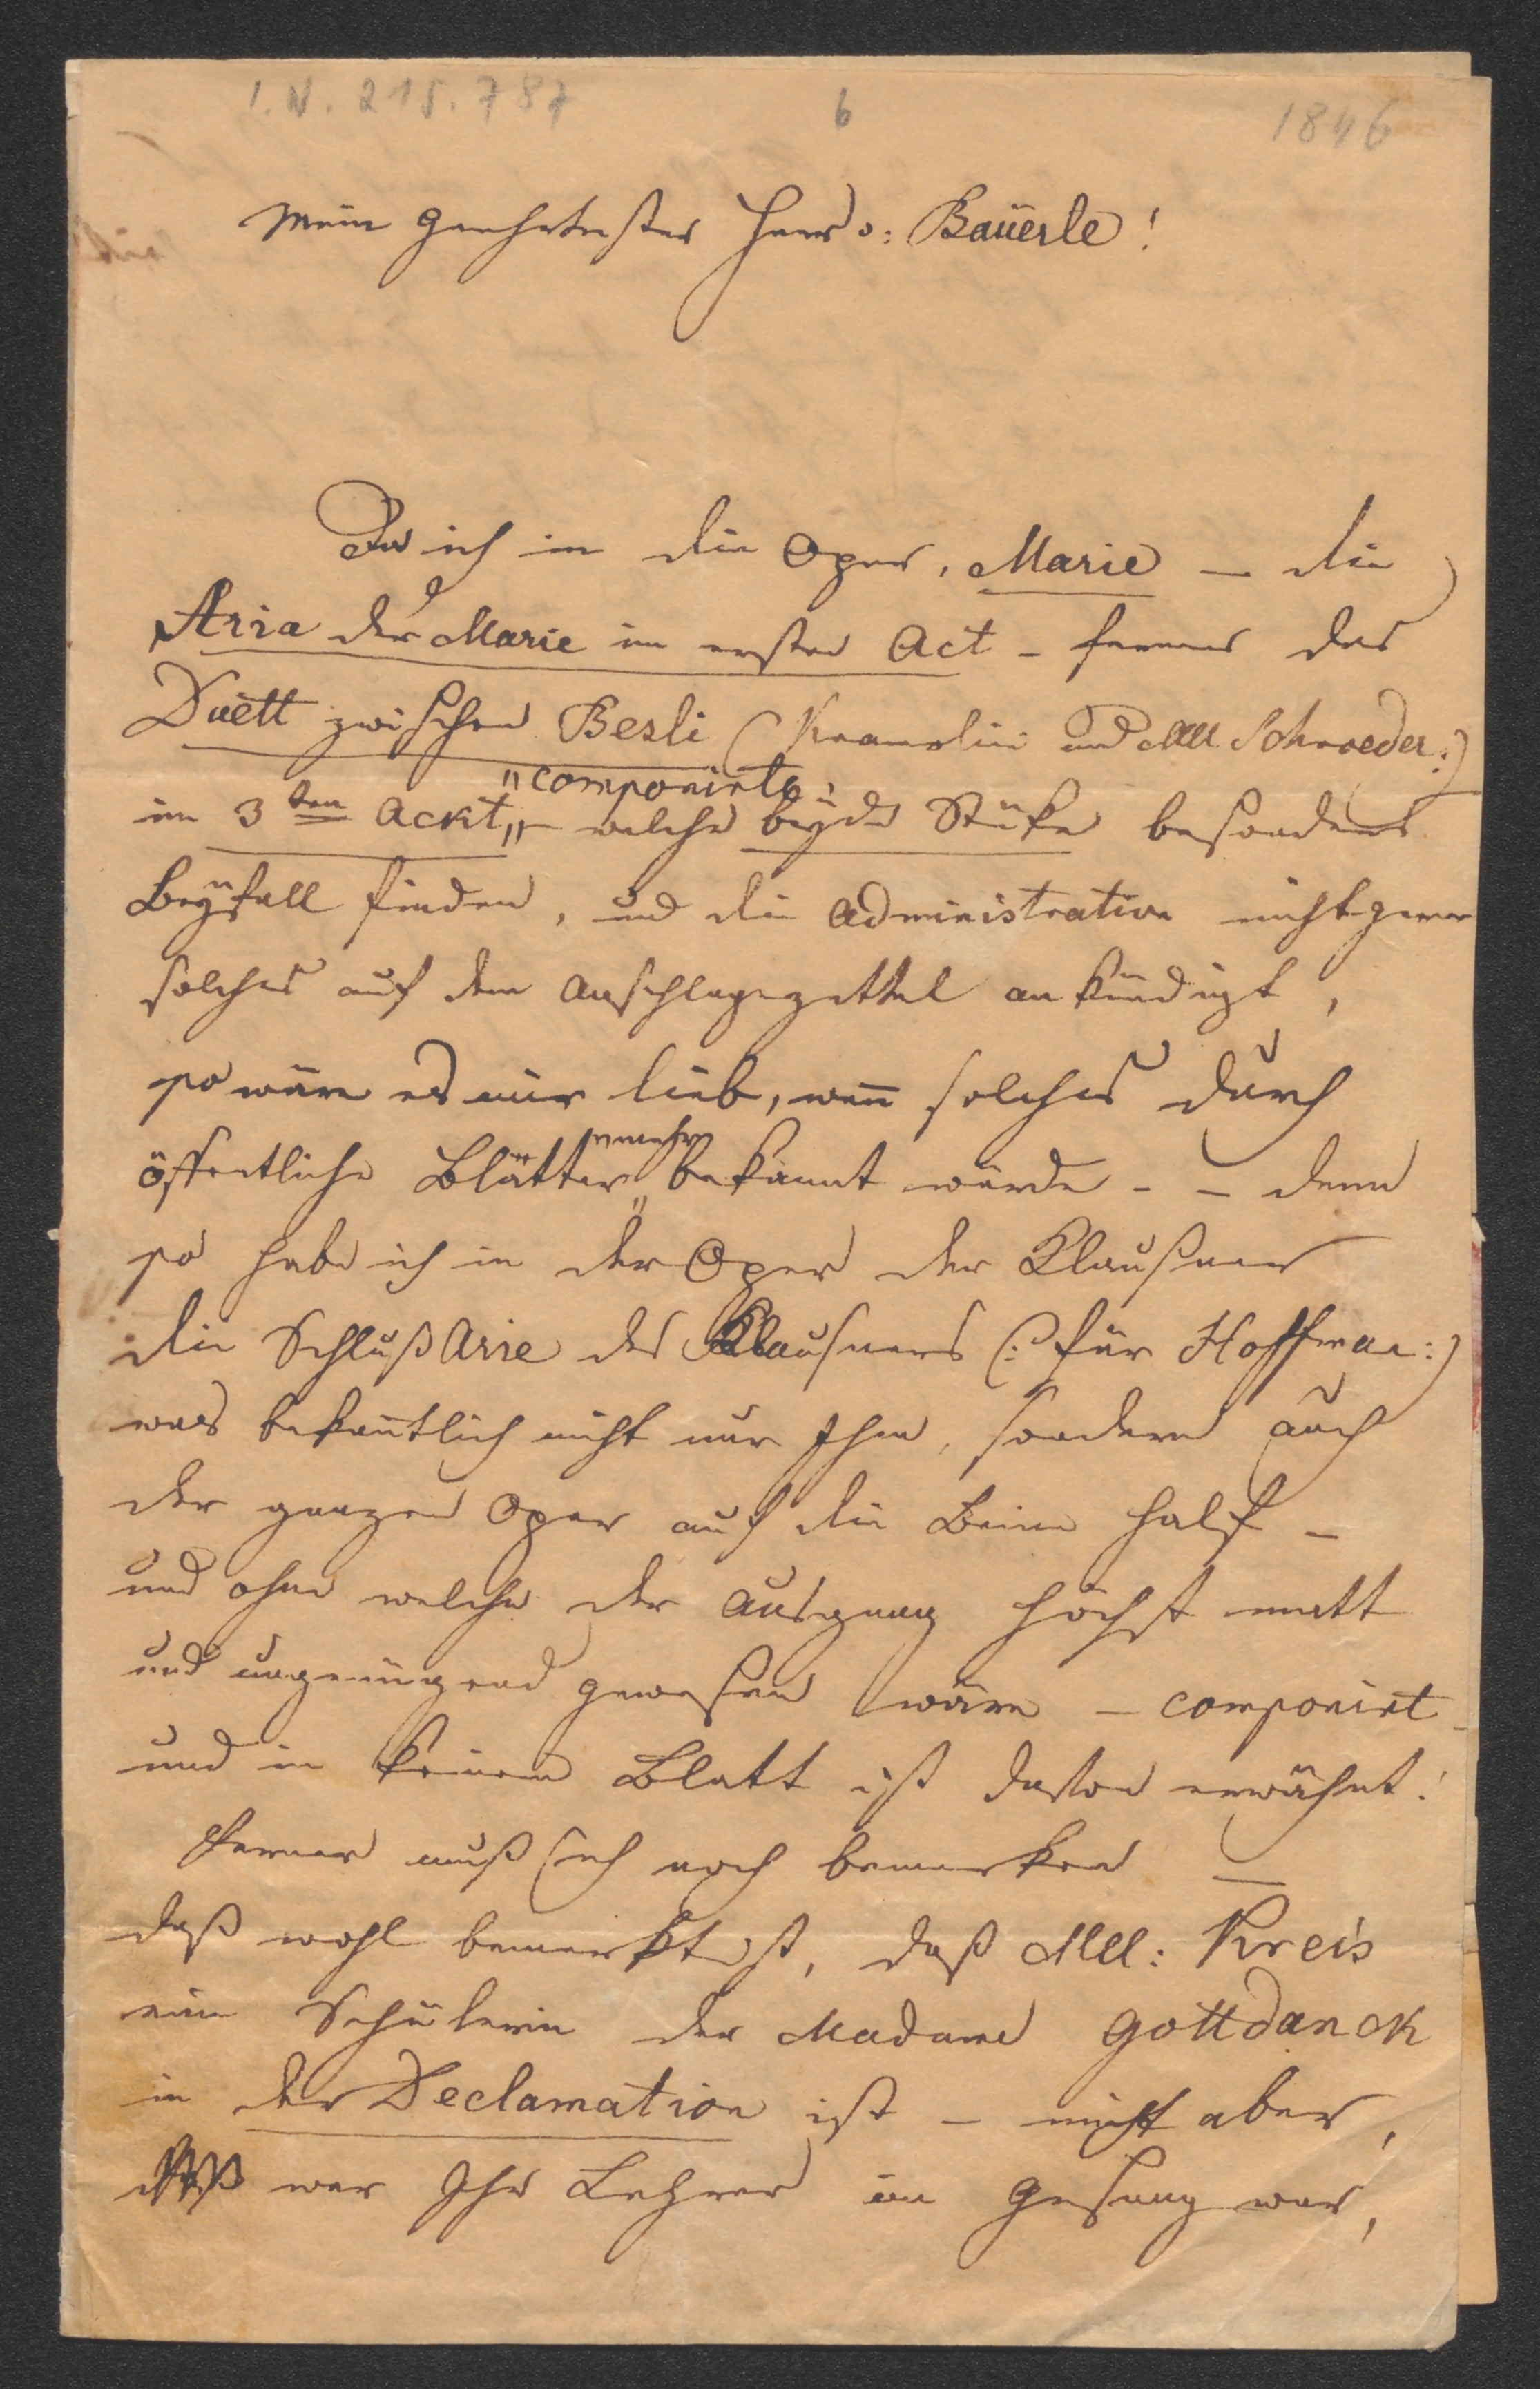 I.N. 215.787 6 1846
Mein Geehrtester Herr v: Baüerle!
Da ich in die Oper, Marie – die
Aria der Marie im ersten Act – ferner das
Duett zwischen Besli (Kramolin und Mll Schroeder:)
"componirte
im 3ten Ackt„ – welche beyde Stüke besonders
Beyfall finden, und die Administration nicht gerne
solches auf dem Anschlagezettel ankündigt,
so wäre es mir lieb, wenn solches durch
mehr
öffentliche Blätter„ bekannt würde – – denn
so habe ich in der Oper der Klaußner
die Schluß Arie des Klausners (: für Hoffman:)
was bekantlich nicht nur Ihm, sondern auch
der ganzen Oper auf die Beine half –
und ohne welche der Ausgang höchst matt
und ungenügend gewesen wäre – componirt –
und in keinem Blatt ist davon erwähnt!
Ferner muß ich noch bemerken –
daß wohl bemerkt ist, daß Mll: Kreis
eine Schülerin der Madame Gottdanck
in der Declamation ist – nicht aber,
wer Ihr Lehrer im Gesang war,